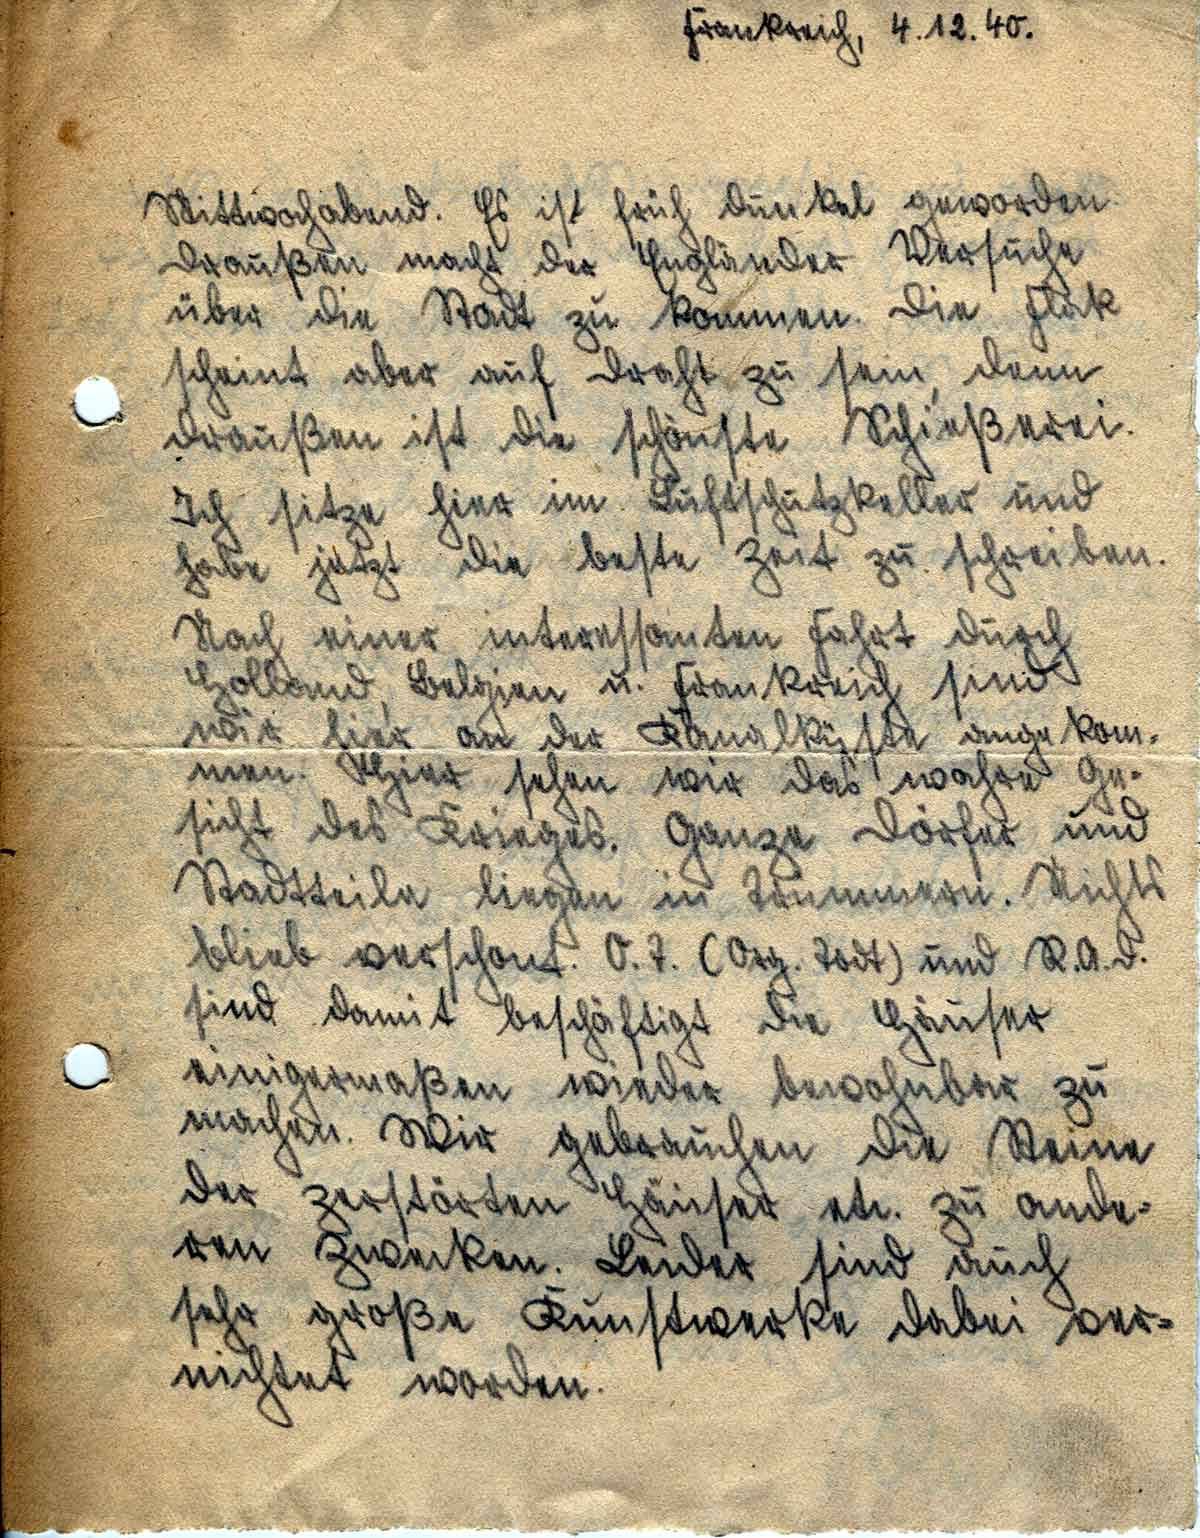 Frankreich, 4.12.40.
Mittwochabend. Es ist früh dunkel geworden.
Draußen macht der Engländer Versuche
über die Stadt zu kommen. Die Flak
scheint aber auf Draht zu sein, denn
draußen ist die schönste Schießerei.
Ich sitze hier im Luftschutzkeller und
habe jetzt die beste Zeit zu schreiben.
Nach einer interessanten Fahrt durch
Holland, Belgien u. Frankreich sind
wir hier an der Kanalküste angekom-
men. Hier sehen wir das wahre Ge-
sicht des Krieges. Ganze Dörfer und
Stadtteile liegen in Trümmern. Nichts
blieb verschont. O.T. (Org. Todt) und R.A.D.
sind damit beschäftigt die Häuser
einigermaßen wieder bewohnbar zu
machen. Wir gebrauchen die Steine
der zerstörten Häuser etc. zu ande-
ren Zwecken. Leider sind auch
sehr große Kunstwerke dabei ver-
nichtet worden.